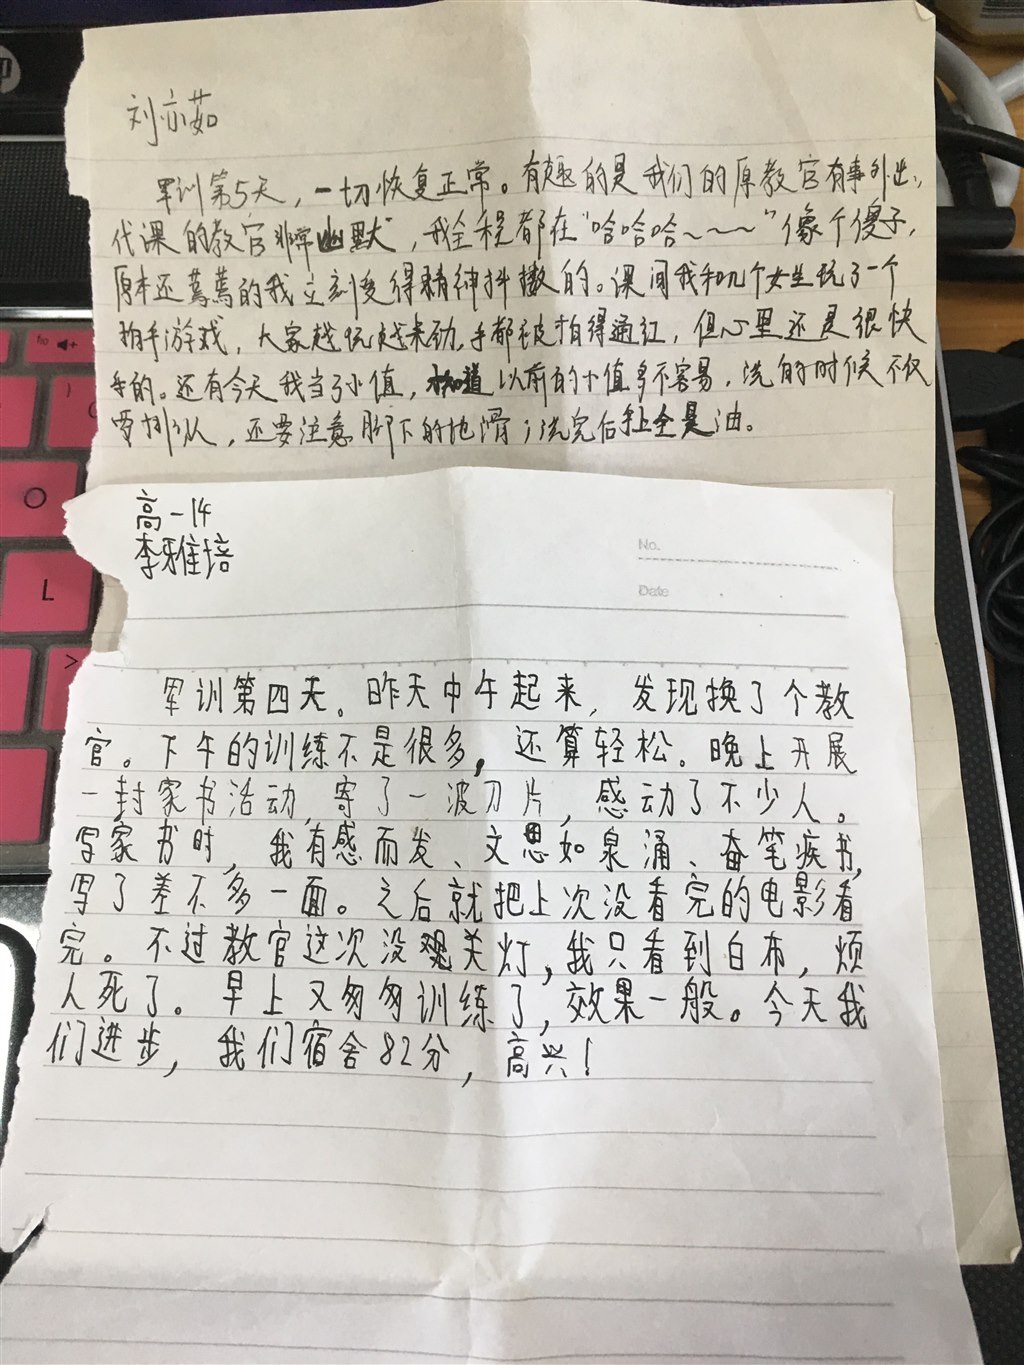 刘亦茹
军训第5天，一切恢复正常。有趣的是我们的原教官有事外出，
代课的教官非常幽默，我全程都在“哈哈哈~~~”像个傻子，
原本还蔫蔫的我立刻变得精神抖擞的。课间我和几个女生玩了一个
拍手游戏，大家越玩越来劲，手都被拍得通红，但心里还是很快
乐的。还有今天我当了小值，才知道以前的小值多不容易，洗的时候不仅
要排队，还要注意脚下的地滑；洗完后手上全是油。
高一14
李雅培
No.
Date
军训第四天。昨天中午起来，发现换了个教
官。下午的训练不是很多，还算轻松。晚上开展
一封家书活动，寄了一波刀片，感动了不少人。
写家书时，我有感而发、文思如泉涌、奋笔疾书，
写了差不多一面。之后就把上次没看完的电影看
完。不过教官这次没关灯，我只看到白布，烦
人死了。早上又匆匆训练了，效果一般。今天我
们进步，我们宿舍82分，高兴！
O
L
>